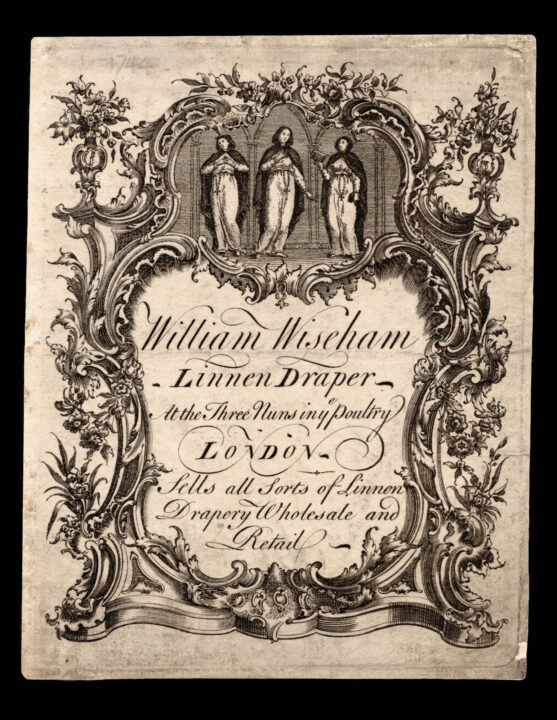 William Wiseham
Linnen Draper
At the Three Nuns in yᵉ Poultry
LONDON
Sells all Sorts of Linnen
Drapery Wholesale and
Retail